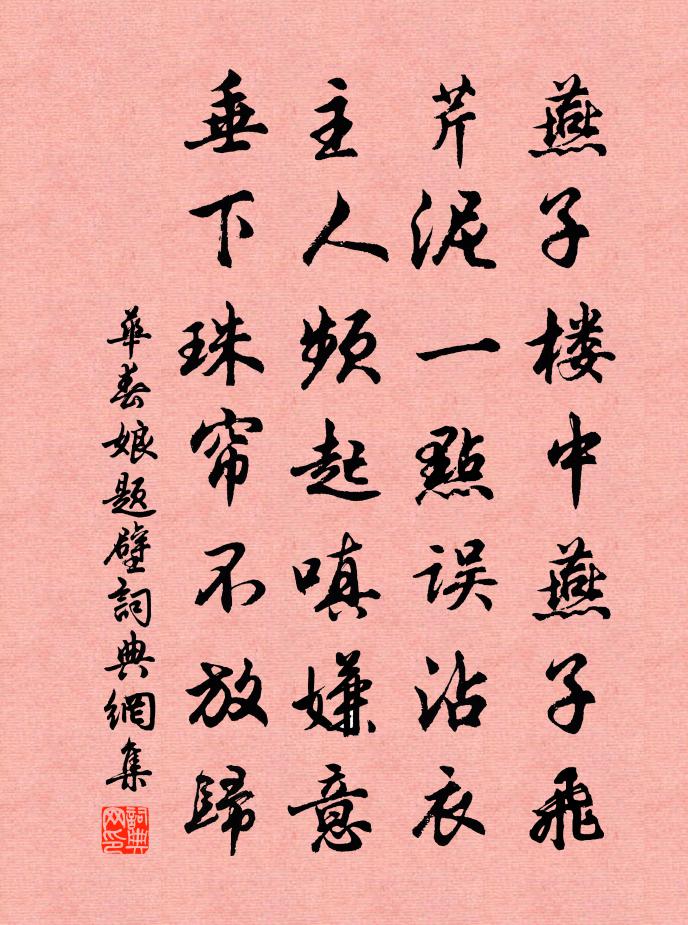 燕子楼中燕子飛
芹泥一點误沾衣
主人頻起嗔嫌意
垂下珠帘不放歸
華春娘題壁詞典網集
詞典网印